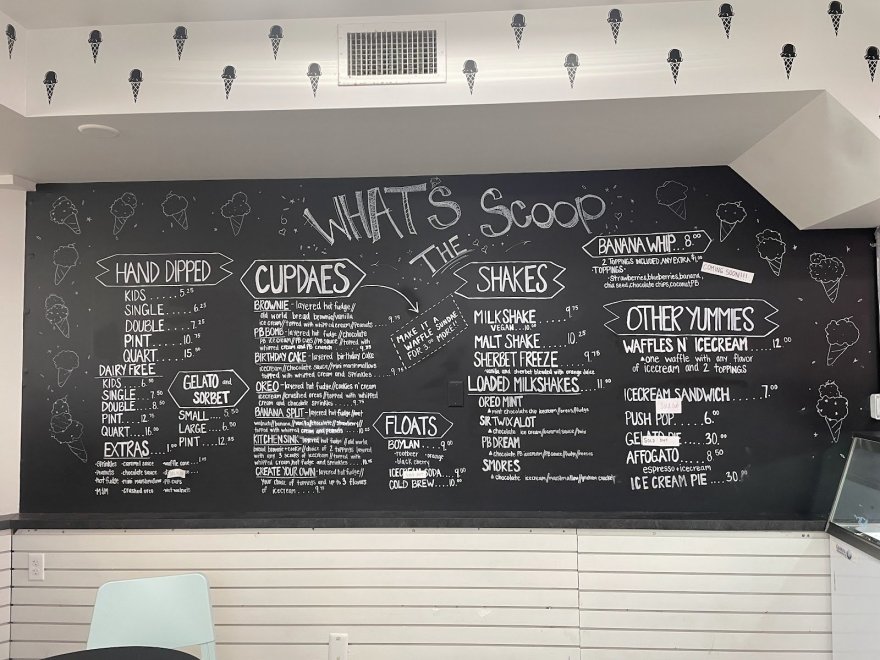 WHAT'S THE Scoop
HAND DIPPED
KIDS.....5.25
SINGLE......6.25
DOUBLE....7.25
PINT....10.75
QUART....15.50
DAIRY FREE
KIDS....6.
SINGLE...7.50
DOUBLE...8.50
PINT...12.
QUART...16.
EXTRAS....1.00
-sprinkles -caramel sauce -waffle cone
-peanuts -chocolate sauce
hot fudge -mini marshmallow -PB cups
-M&M -crushed oreo -wet walnuts
GELATO and
SORBET
SMALL...5.50
LARGE...6.50
PINT...12.25
CUPDAES
BROWNIE - layered hot fudge//
old world bread brownie/vanilla
ice cream//topped with whipped cream/peanuts
PB BOMB - layered hot fudge/chocolate
PB ice cream//PB cups/PB sauce//topped with
whipped cream and PB crunch
BIRTHDAY CAKE - layered birthday cake
icecream//chocolate sauce/mini marshmallows
topped with whipped cream and sprinkles
OREO - layered hot fudge//cookies n' cream
icecream/crushed oreos//topped with whipped
cream and chocolate crunchies
BANANA SPLIT - layered hot/wet
walnuts/banana//vanilla/chocolate/strawberry//
topped with whipped cream and peanuts
KITCHEN SINK - layered hot fudge//old world
bread brownie+cookie//choice of 2 toppings layered
with any 3 scoops of icecream//topped with
whipped cream/hot fudge and sprinkles
CREATE YOUR OWN - layered hot fudge//
Your choice of toppings and up to 3 flavors
of icecream....9.75
MAKE IT A
WAFFLE SUNDAE
FOR 3.00 MORE!
FLOATS
BOYLAN....9.00
-rootbeer -orange
-black cherry
ICECREAM SODA...9.00
COLD BREW....10.00
SHAKES
MILKSHAKE.......9.75
VEGAN...10.50
MALT SHAKE......10.25
SHERBET FREEZE......9.75
-Vanilla and sherbet blended with orange juice
LOADED MILKSHAKES...11.00
OREO MINT
mint chocolate chip icecream/oreos/fudge
SIR TWIX ALOT
chocolate ice cream/caramel sauce/twix
PB DREAM
chocolate PB icecream/PB sauce/fudge/reeses
SMORES
chocolate icecream/marshmallow/graham cracker
BANANA WHIP..8.00
2 TOPPINGS INCLUDED, ANY EXTRA $1.00
TOPPINGS-
-strawberries, blueberries, banana,
chia seed, chocolate chips, coconut, PB
COMING SOON!!!
OTHER YUMMIES
WAFFLES N' ICECREAM...12.00
one waffle with any flavor
of icecream and 2 toppings
ICECREAM SANDWICH......7.00
PUSH POP.....6.00
SOLD OUT
30.00
AFFOGATO.....8.50
espresso+icecream
ICE CREAM PIE....30.00